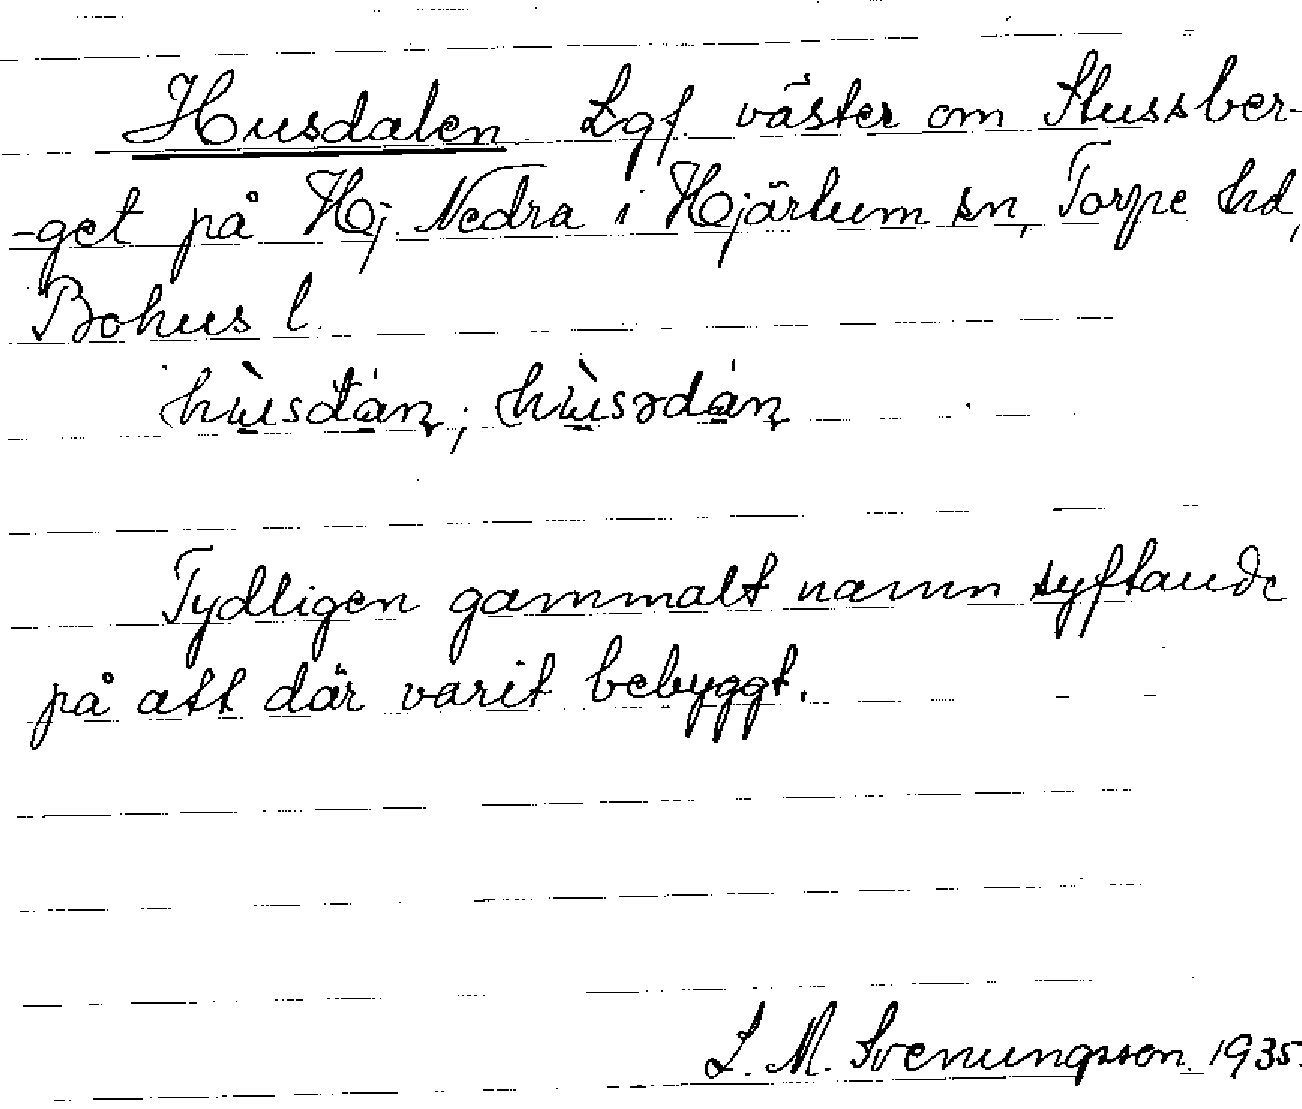 Husdalen Lgf väster om Slussber-
-get på Hj. Nedra i Hjärtum sn, Torpe hd,
Bohus l.
hùsdán; hùsədán
Tydligen gammalt namn syftande
på att där varit bebyggt.
L. M. Svenungsson. 1935.